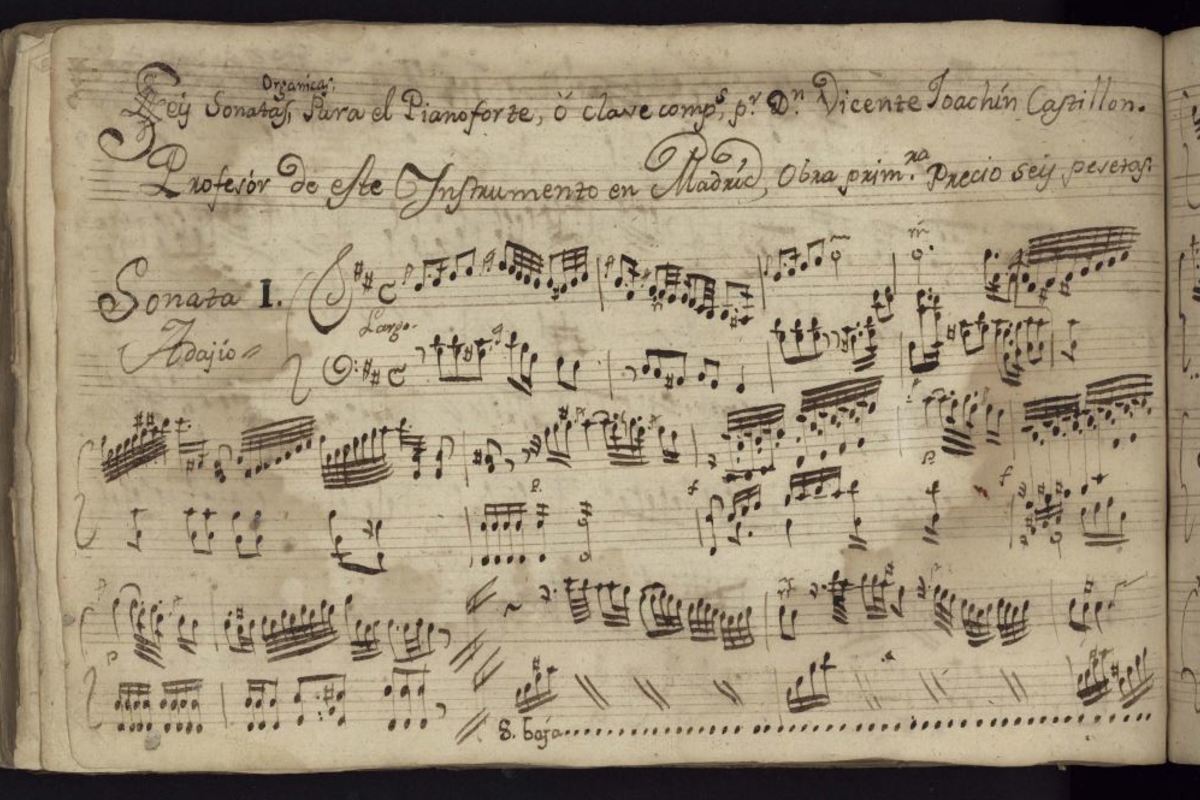 Organicas,
Seÿ Sonatas, Para el Pianoforte, ó clave comp.s p.r D.n Vicente Joachín Castillon.
Profesór de este Instrumento en Madrid, Obra prim.ra Precio seÿ pesetas.
Sonata I.
Largo.
Adajio
8. baja